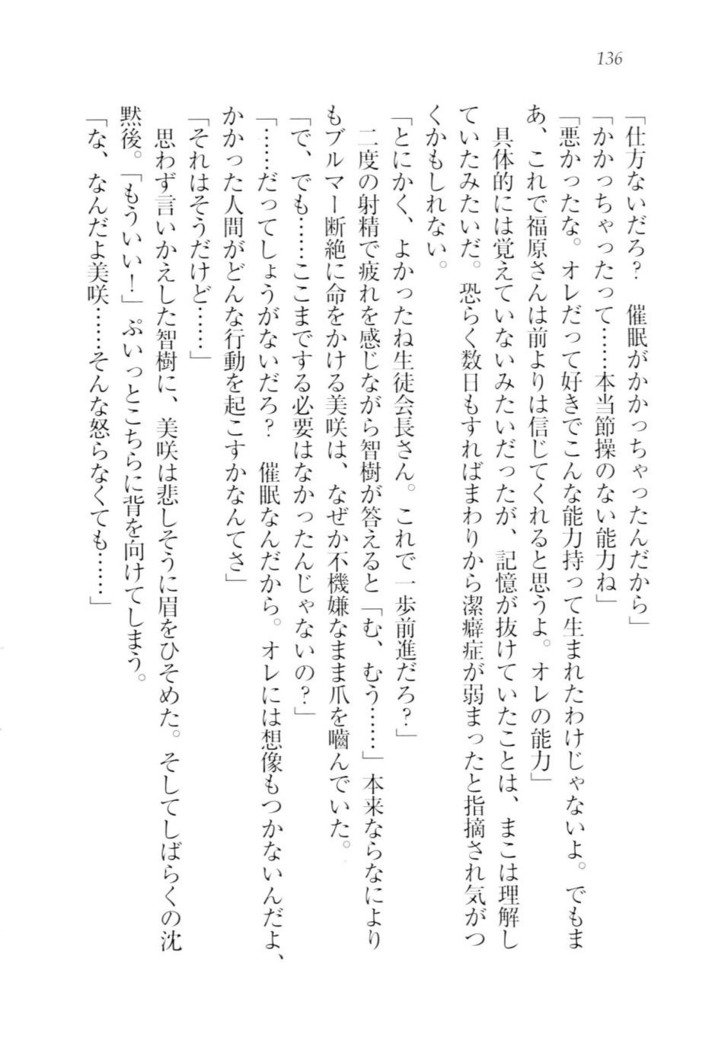 136
「仕方ないだろ？　催眠がかかっちゃったんだから」
「かかっちゃったって……本当節操のない能力ね」
「悪かったな。オレだって好きでこんな能力持って生まれたわけじゃないよ。でもま
あ、これで福原さんは前よりは信じてくれると思うよ。オレの能力」
　具体的には覚えていないみたいだったが、記憶が抜けていたことは、まこは理解し
ていたみたいだ。恐らく数日もすればまわりから潔癖症が弱まったと指摘され気がつ
くかもしれない。
「とにかく、よかったね生徒会長さん。これで一歩前進だろ？」
　二度の射精で疲れを感じながら智樹が答えると「む、むう……」本来ならなにより
もブルマー断絶に命をかける美咲は、なぜか不機嫌なまま爪を嚙んでいた。
「で、でも……ここまでする必要はなかったんじゃないの？」
「……だってしょうがないだろ？　催眠なんだから。オレには想像もつかないんだよ、
かかった人間がどんな行動を起こすかなんてさ」
「それはそうだけど……」
　思わず言いかえした智樹に、美咲は悲しそうに眉をひそめた。そしてしばらくの沈
黙後。「もういい！」ぷいっとこちらに背を向けてしまう。
「な、なんだよ美咲……そんな怒らなくても……」